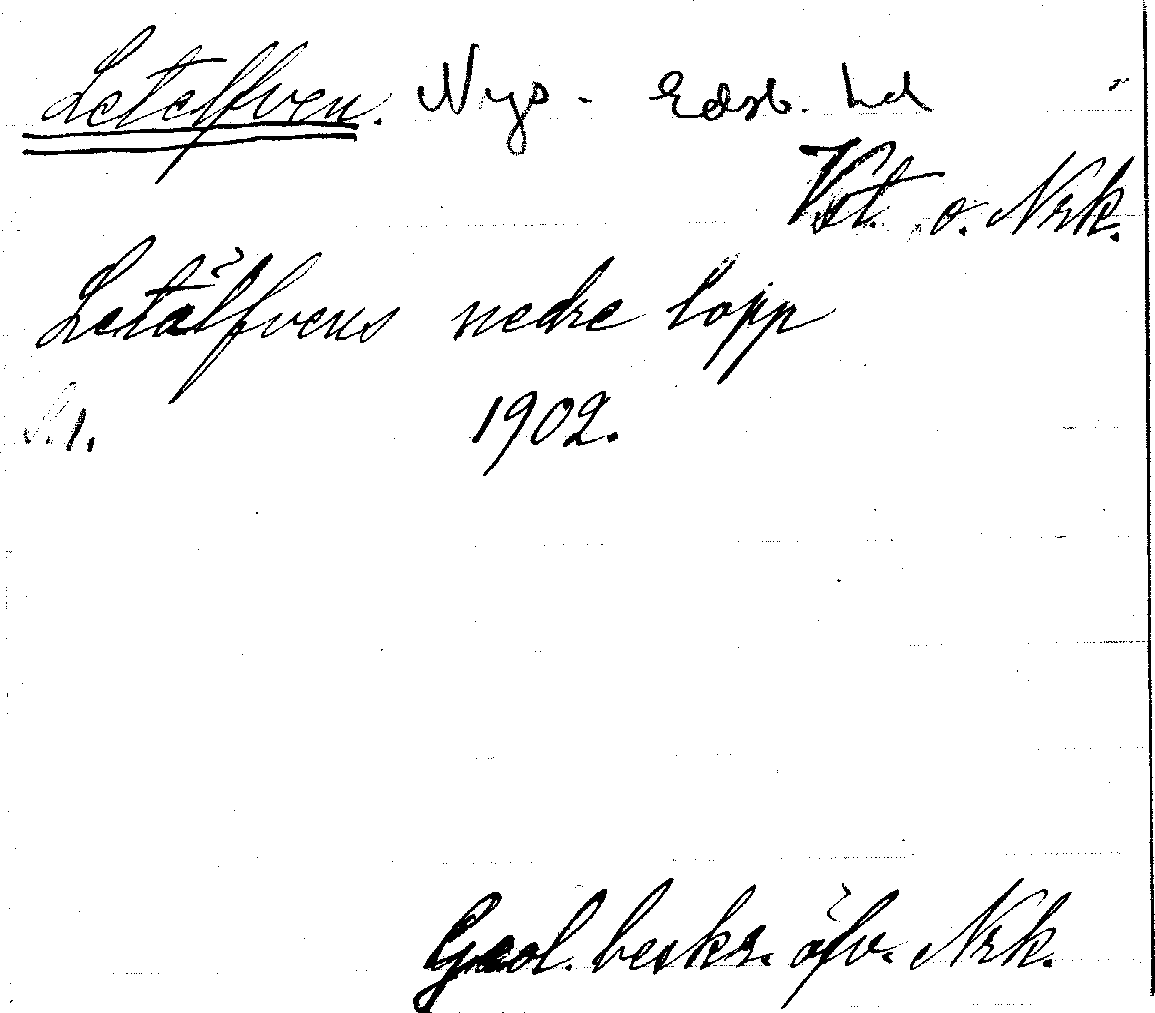 Letelfven. Nys - Edsb. hd
Vst. o. Nrk.
Letälfvens nedre lopp
S. 1. 1902.
Geol. beskr. öfv. Nrk.